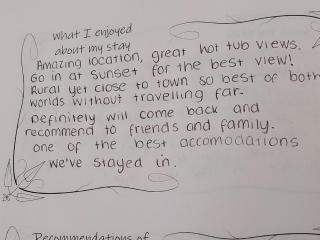 What I enjoyed
about my stay
Amazing location, great hot tub views.
Go in at sunset for the best view!
Rural yet close to town so best of both
worlds without travelling far.
Definitely will come back and
recommend to friends and family.
one of the best accomodations
we've stayed in.
Recommendations of